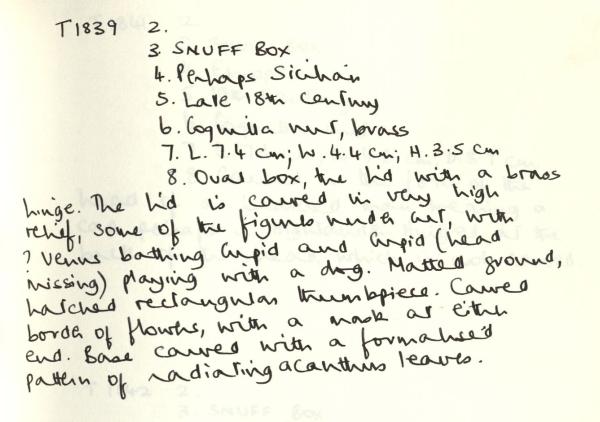 T1839 2.
3. SNUFF BOX
4. Perhaps Sicilian
5. Late 18th century
6. Coquilla nut, brass
7. L. 7.4 cm; W. 4.4 cm; H. 3.5 cm
8. Oval box, the lid with a brass
hinge. The lid is carved in very high
relief, some of the figures under cut, with
? Venus bathing Cupid and Cupid (head
missing) playing with a dog. Matted ground,
hatched rectangular thumbpiece. Carved
border of flowers, with a mask at either
end. Base carved with a formalised
pattern of radiating acanthus leaves.